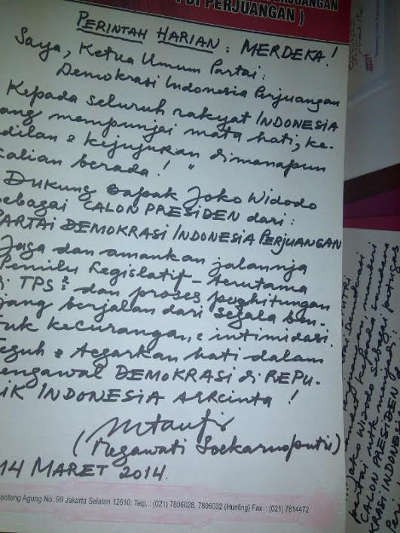 PDI PERJUANGAN )
PERINTAH HARIAN : MERDEKA !
Saya, Ketua Umum Partai :
Demokrasi Indonesia Perjuangan
Kepada seluruh rakyat INDONESIA
yang mempunjai mata hati, ke-
adilan & kejujuran dimanapun
kalian berada ! "
Dukung Bapak Joko Widodo
sebagai CALON PRESIDEN dari :
PARTAI DEMOKRASI INDONESIA PERJUANGAN
Jaga dan amankan jalannja
Pemilu Legislatif - terutama
di TPS² dan proses penghitungan
jang berjalan dari segala ben-
tuk kecurangan, & intimidasi.
Teguh & tegarkan hati dalam
mengawal DEMOKRASI di REPU-
LIK INDONESIA tercinta !
(Megawati Soekarnoputri)
14 MARET 2014.
Lenteng Agung No. 99 Jakarta Selatan 12610, Telp. : (021) 7806028, 7806032 (Hunting) Fax : (021) 7814472
Joko Widodo sebagai
CALON PRESIDEN
KRASI INDONESIA